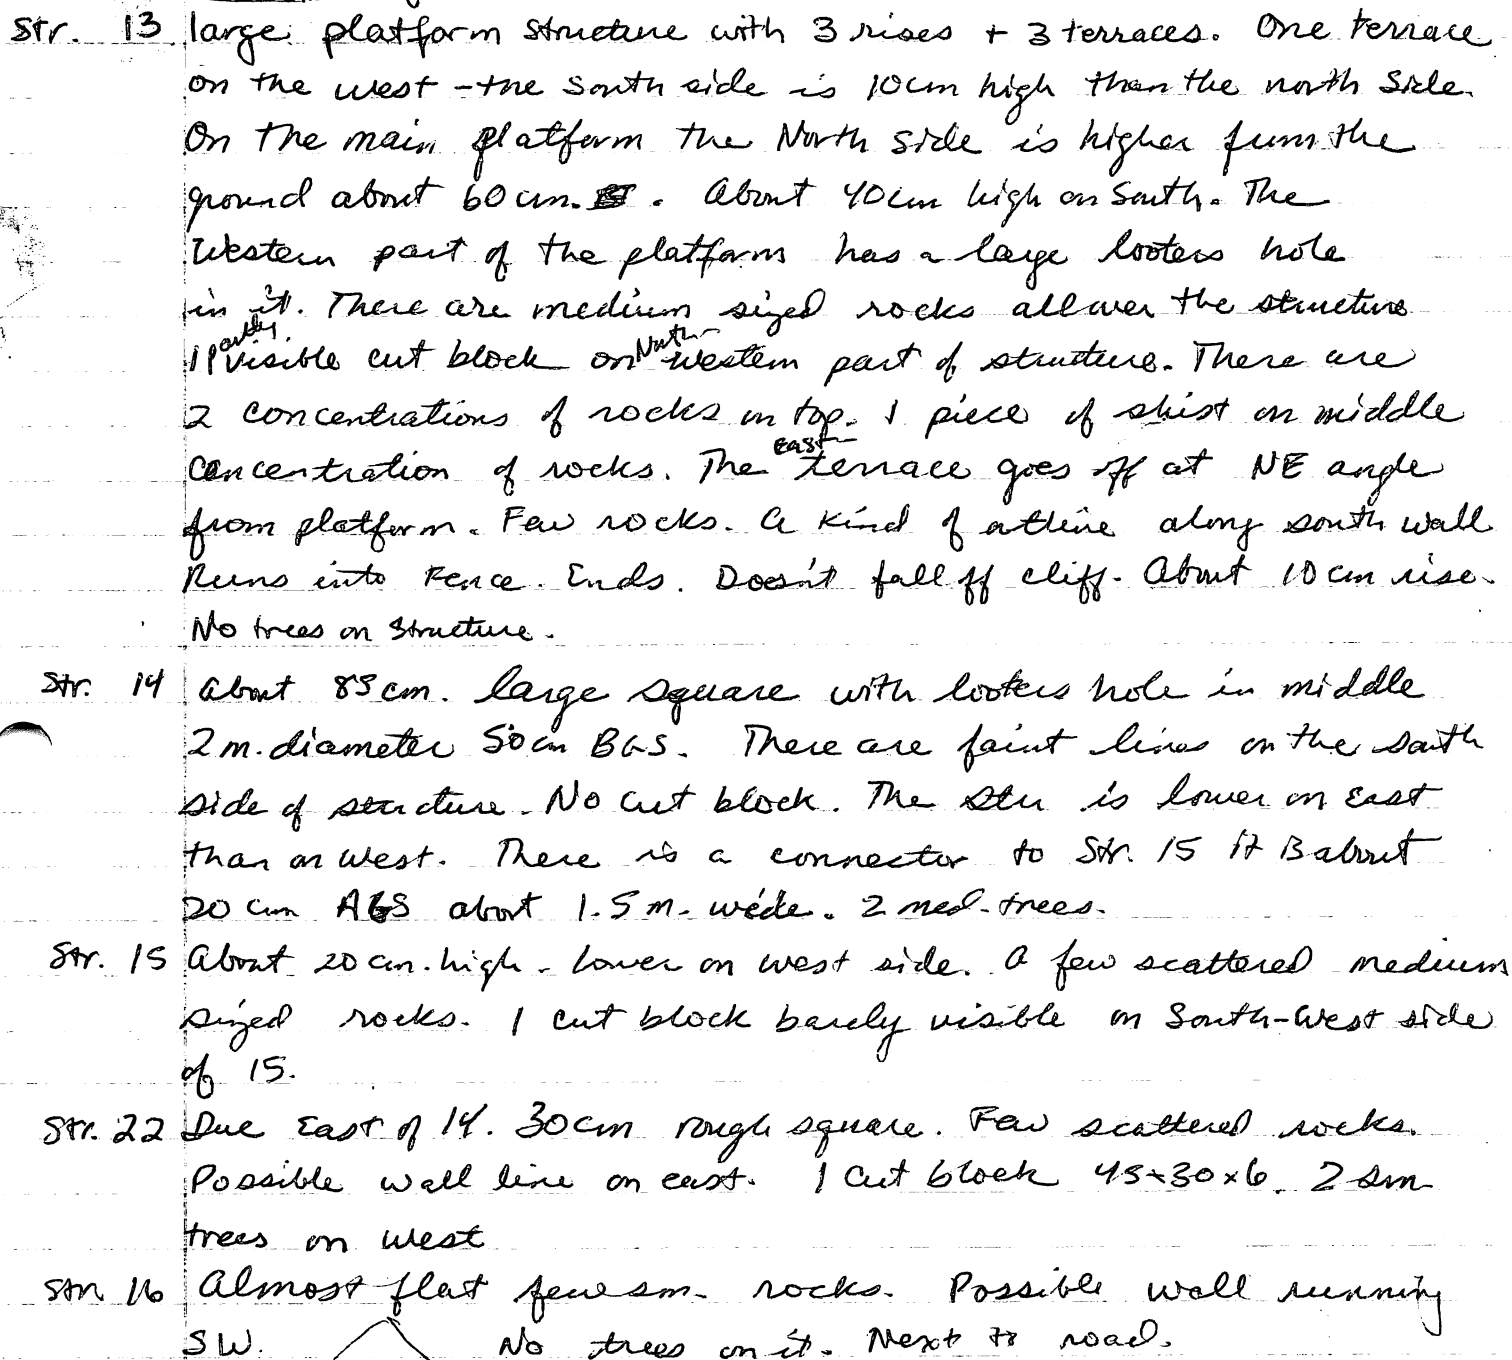 Str. 13 large platform structure with 3 rises + 3 terraces. One terrace
on the west - the south side is 10cm high than the north side.
On the main platform the North side is higher from the
ground about 60 cm. . About 40cm high on South. The
Western part of the platform has a large looters hole
in it. There are medium sized rocks all over the structure
1 partly visible cut block on North-western part of structure. There are
2 concentrations of rocks on top. 1 piece of shist on middle
concentration of rocks. The East terrace goes off at NE angle
from platform. Few rocks. A kind of along south wall
Runs into Fence. Ends. Doesn't fall off cliff. About 10 cm rise.
No trees on structure.
Str. 14 About 85 cm. large square with looters hole in middle
2 m. diameter 50cm BGS. There are faint lines on the south
side of structure. No cut block. The str is lower on East
than on West. There is a connector to Str. 15 It B about
20 cm AGS about 1.5 m. wide. 2 med. trees.
Str. 15 About 20 cm. high - lower on west side. A few scattered medium
sized rocks. 1 cut block barely visible on South-West side
of 15.
Str. 22 Due East of 14. 30cm rough square. Few scattered rocks.
Possible wall line on east. 1 cut block 45x30x6. 2 sm
trees on west
Str 16 Almost flat few sm. rocks. Possible wall running
SW. No trees on it. Next to road.